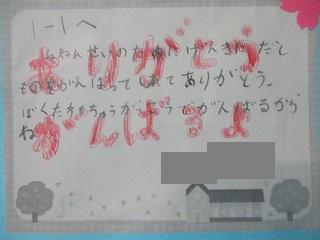 1-1へ
ねんせいのためにげんきなだし
ものをがんばってくれてありがとう。
ぼくたちもちゅうがっこうでがんばるから
ね
ありがとう
がんばるよ